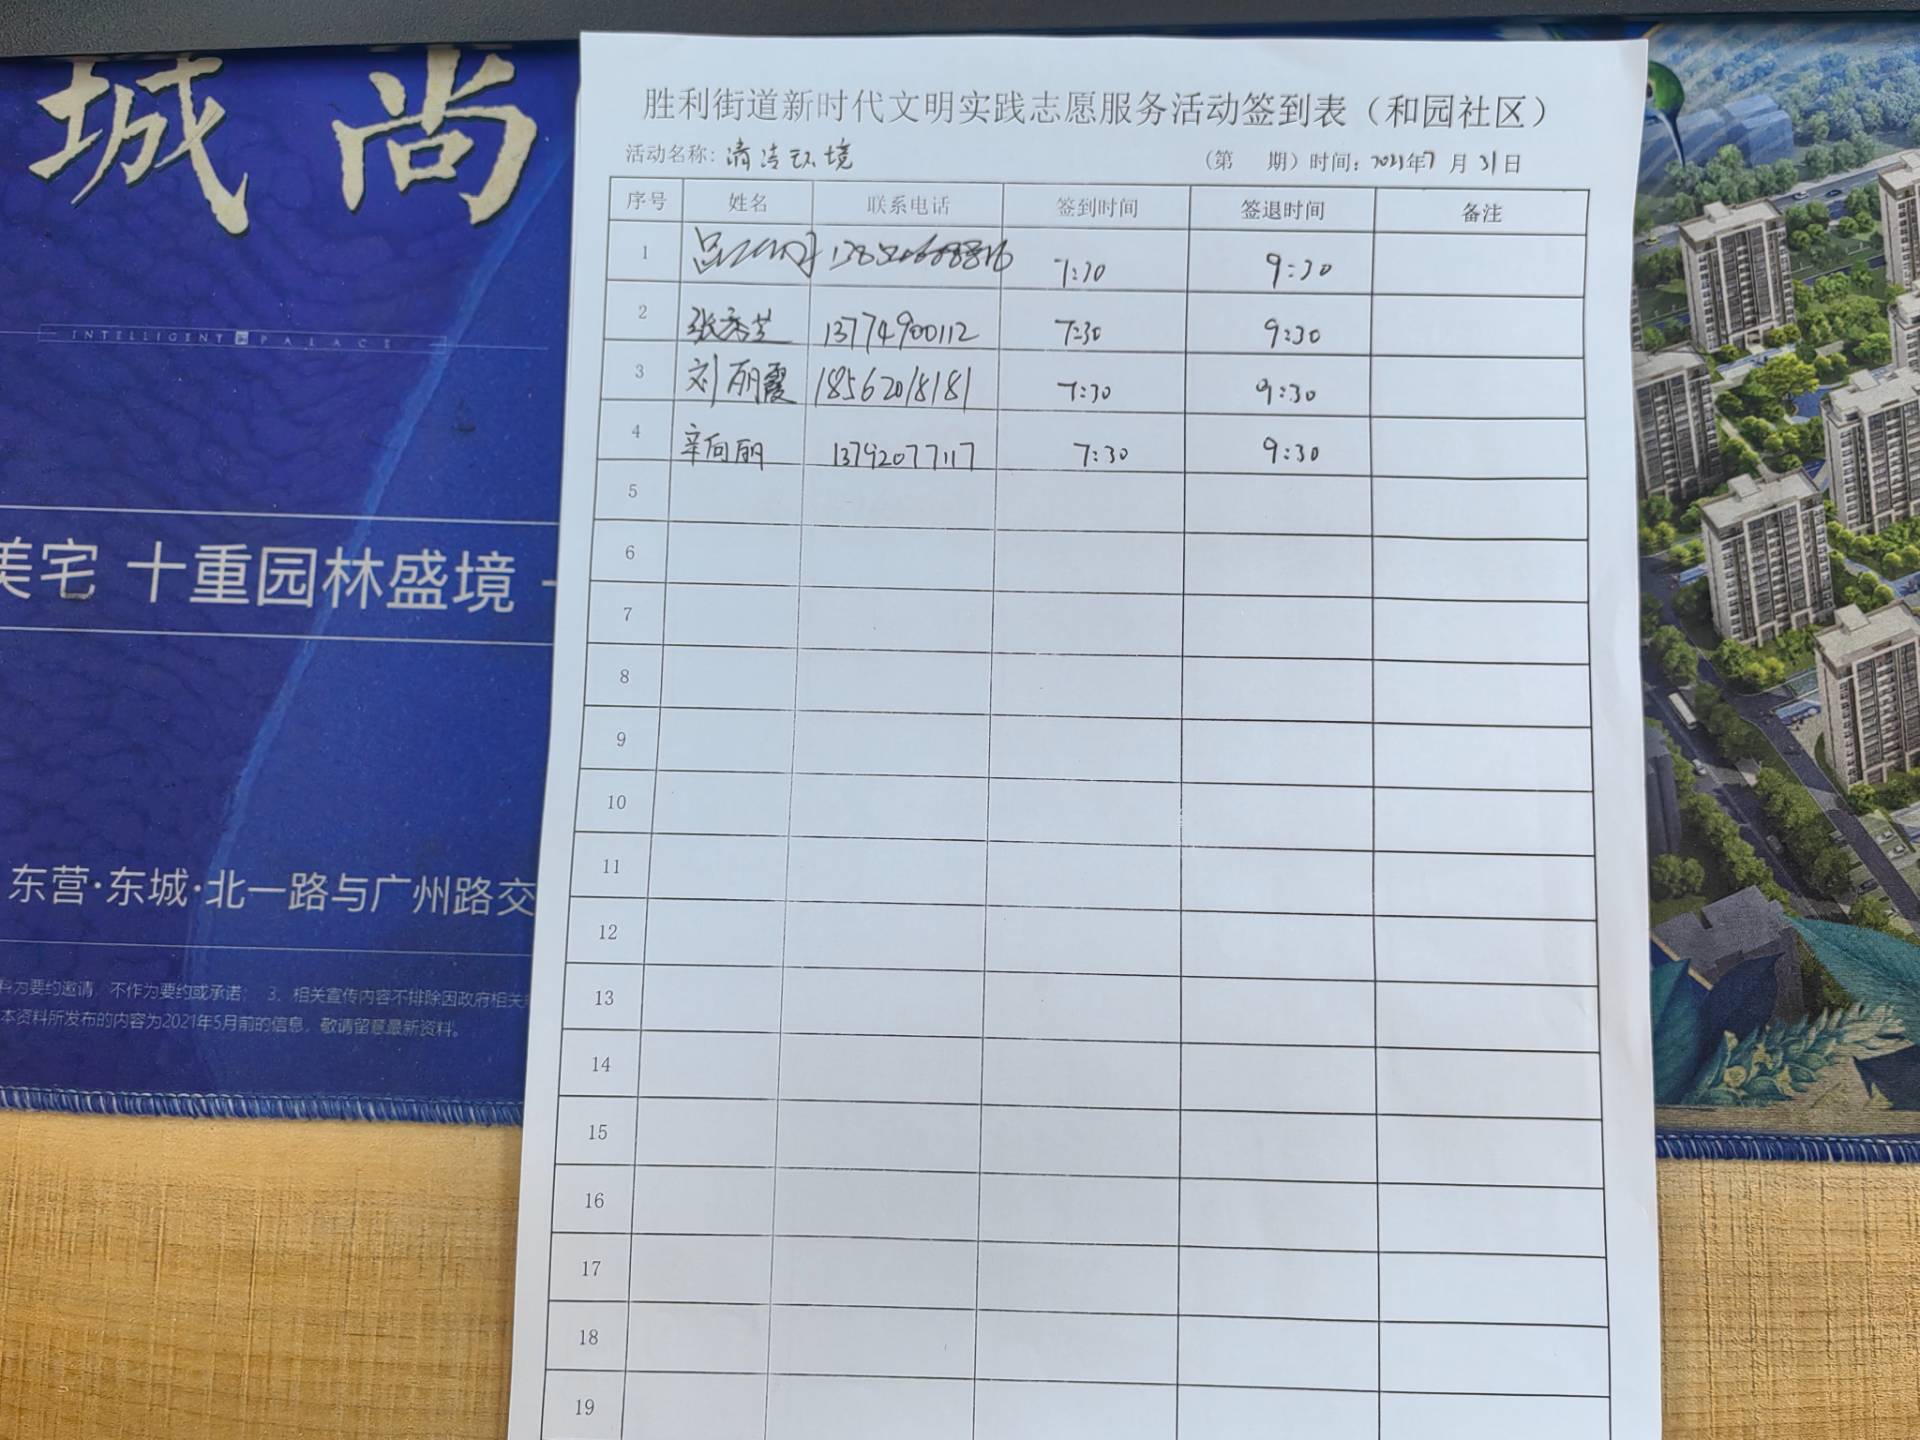 城 尚
INTELLIGENT PALACE
美宅 十重园林盛境
东营·东城·北一路与广州路交
料为要约邀请，不作为要约或承诺； 3、相关宣传内容不排除因政府相关
本资料所发布的内容为2021年5月前的信息，敬请留意最新资料。
胜利街道新时代文明实践志愿服务活动签到表（和园社区）
活动名称：清洁环境 （第 期）时间：2021年7月31日
序号 姓名 联系电话 签到时间 签退时间 备注
1 7:30 9:30
2 张秀芝 13774900112 7:30 9:30
3 刘丽霞 18562018181 7:30 9:30
4 辛向丽 13792077117 7:30 9:30
5
6
7
8
9
10
11
12
13
14
15
16
17
18
19